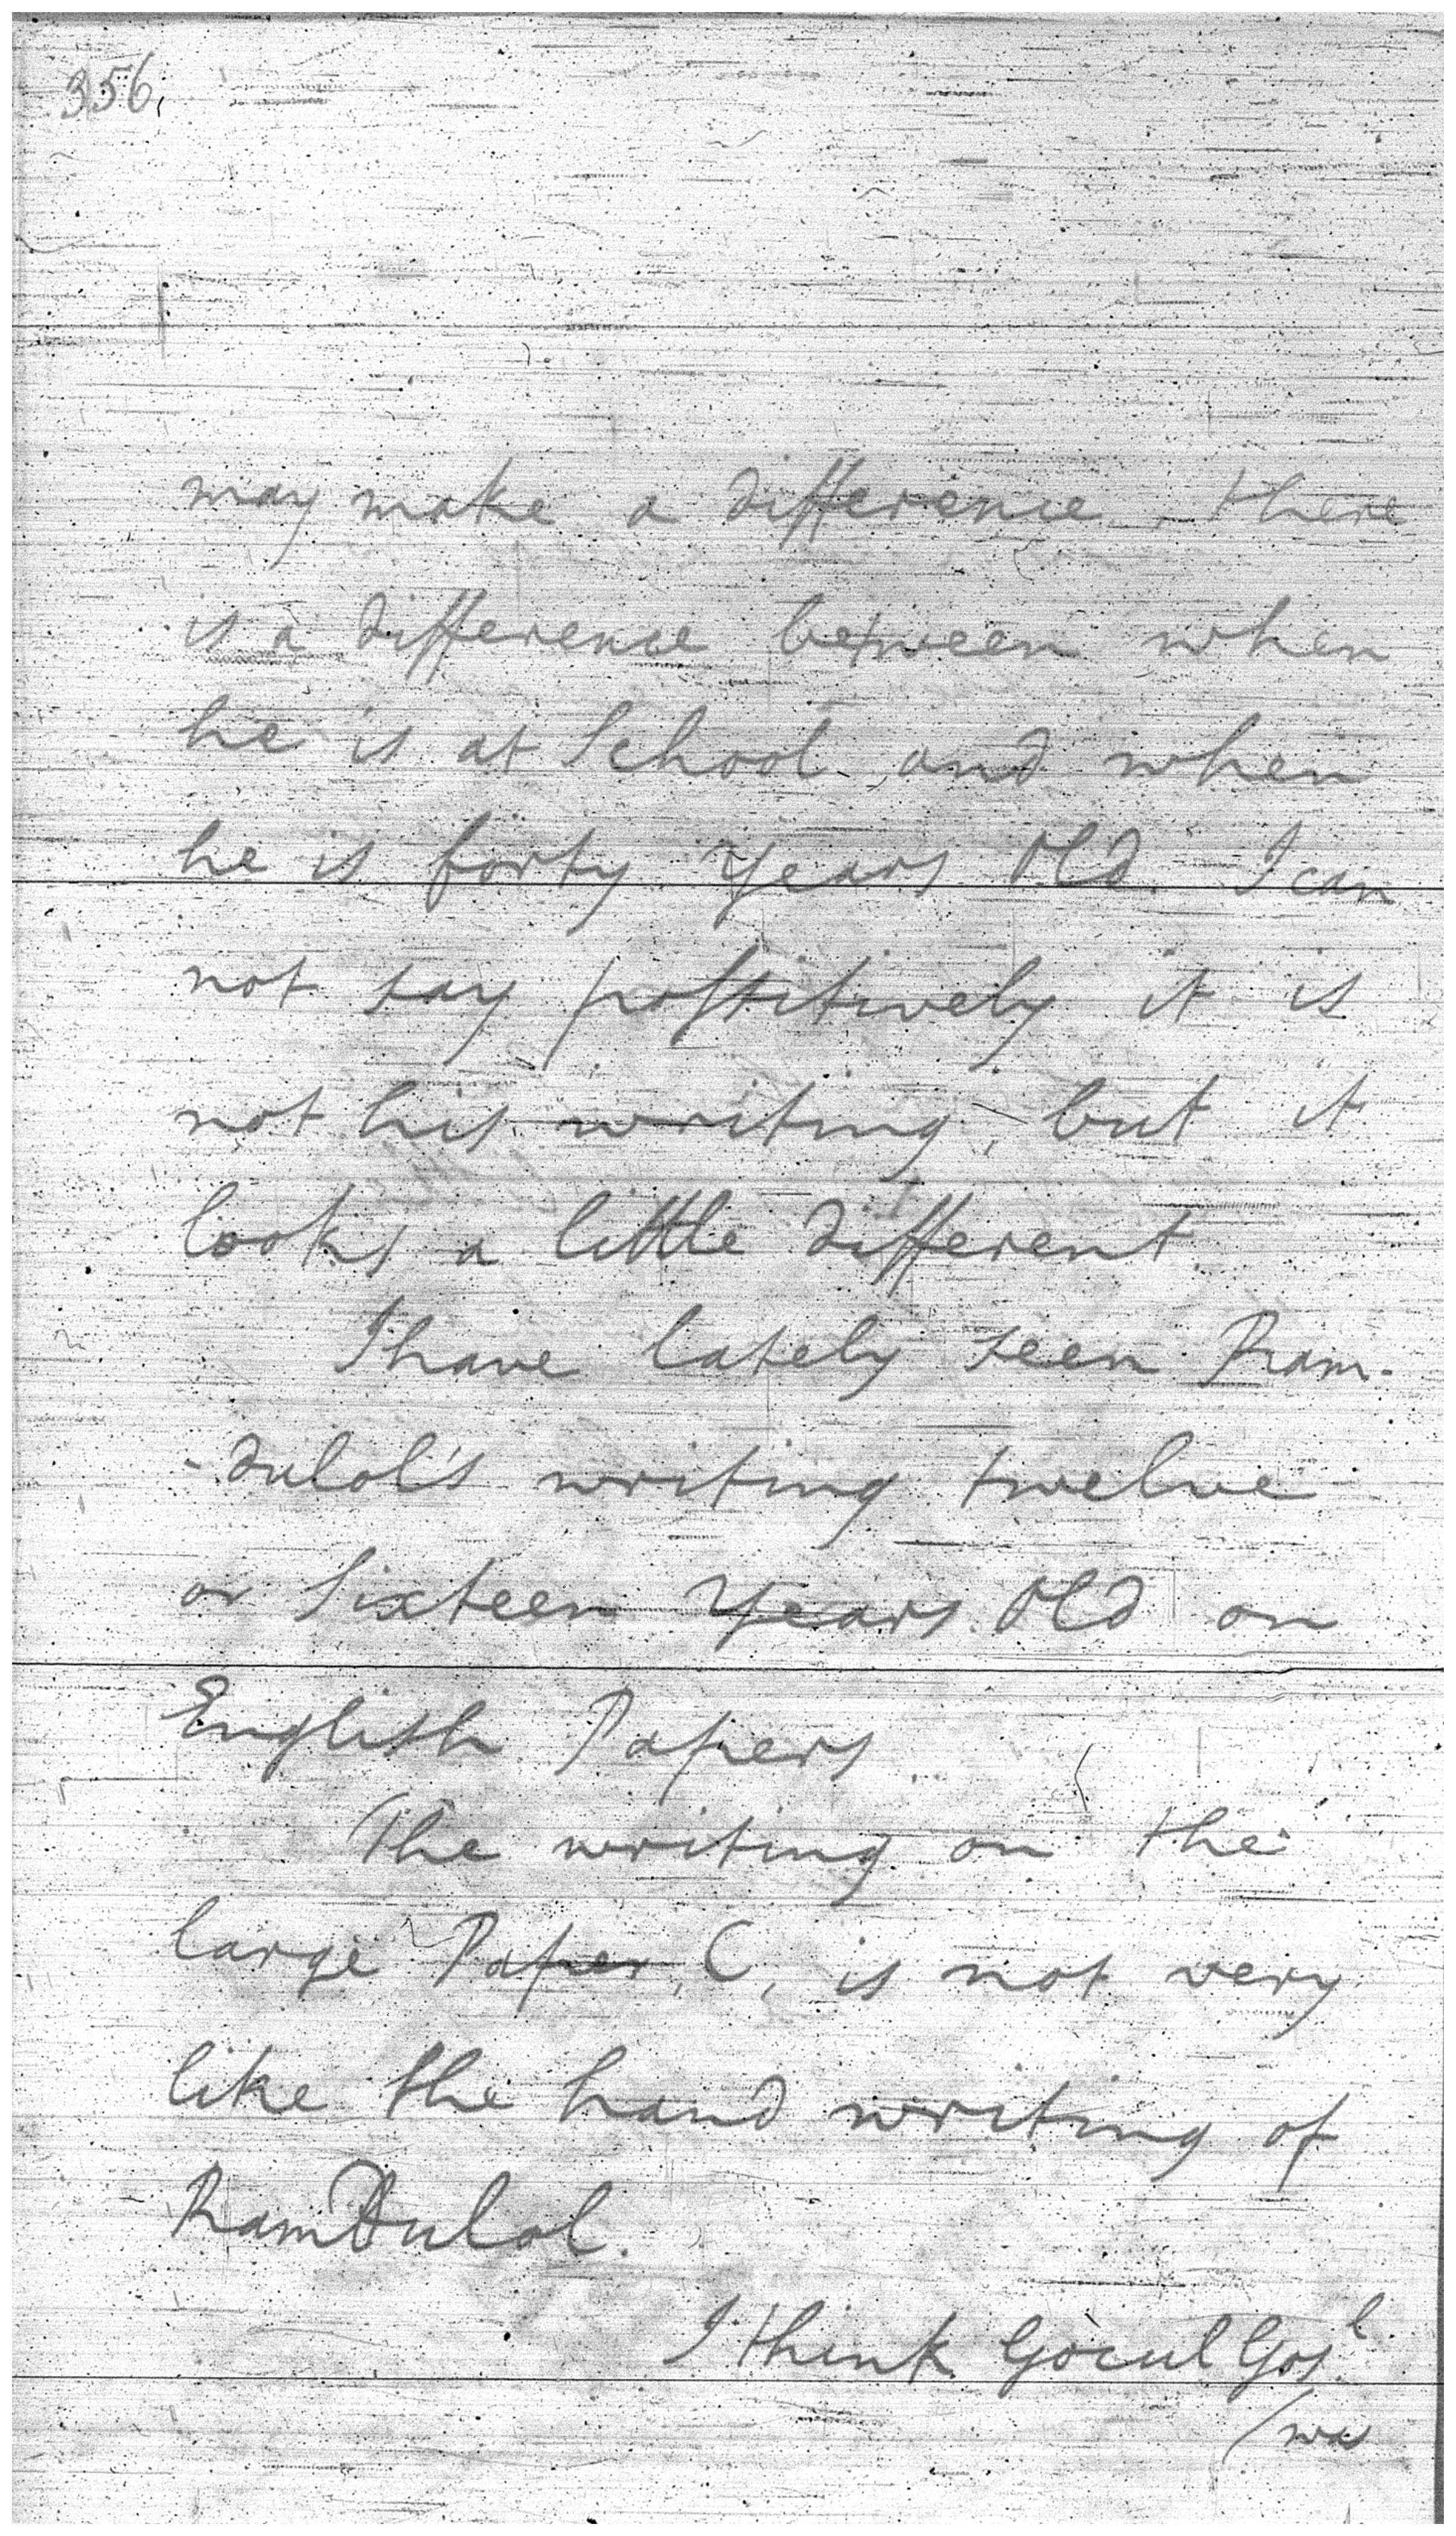 356,
may make a difference. there
is a difference between when
he is at School and when
he is forty Years Old. I can
not say possitively it is
not his writing, but it
looks a little different.
I have lately seen Ram-
-dulol's writing twelve
or Sixteen Years Old on
English Papers
The writing on the
large Paper, C, is not very
like the hand writing of
RamDulol.
I think Gocul Gos